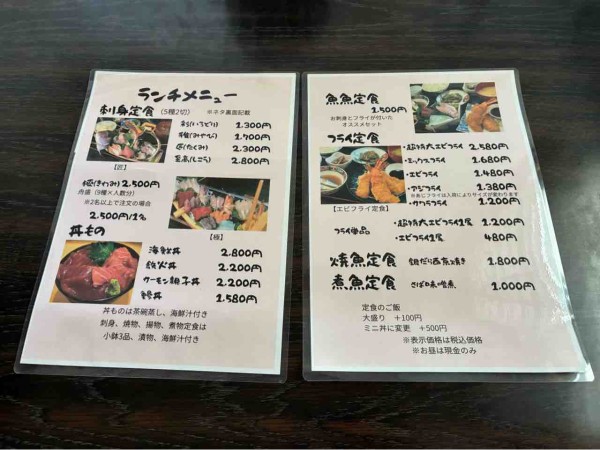 ランチメニュー
刺身定食 (5種2切) ※ネタ裏面記載
彩(いろどり) 1.300円
雅(みやび) 1.700円
匠(たくみ) 2.300円
至高(しこう) 2.800円
【匠】
極(きわみ) 2.500円
舟盛(9種×人数分)
※2名以上で注文の場合
2.500円/1名
【極】
丼もの
海鮮丼 2.800円
鉄火丼 2.200円
サーモン親子丼 2.200円
1.580円
丼ものは茶碗蒸し、海鮮汁付き
刺身、焼物、揚物、煮物定食は
小鉢3品、漬物、海鮮汁付き
魚魚定食
1.500円
お刺身とフライが付いた
オススメセット
フライ定食
・超特大エビフライ 2.580円
・ミックスフライ 1.680円
・エビフライ 1.480円
・アジフライ 1.380円
※あじフライは入荷によりサイズが変わります
・イカフライ 1.200円
【エビフライ定食】
フライ単品
・超特大エビフライ1尾 1.200円
・エビフライ1尾 480円
焼魚定食 銀だら西京焼き 1.800円
煮魚定食 さばの味噌煮 1.000円
定食のご飯
大盛り +100円
ミニ丼に変更 +500円
※表示価格は税込価格
※お昼は現金のみ